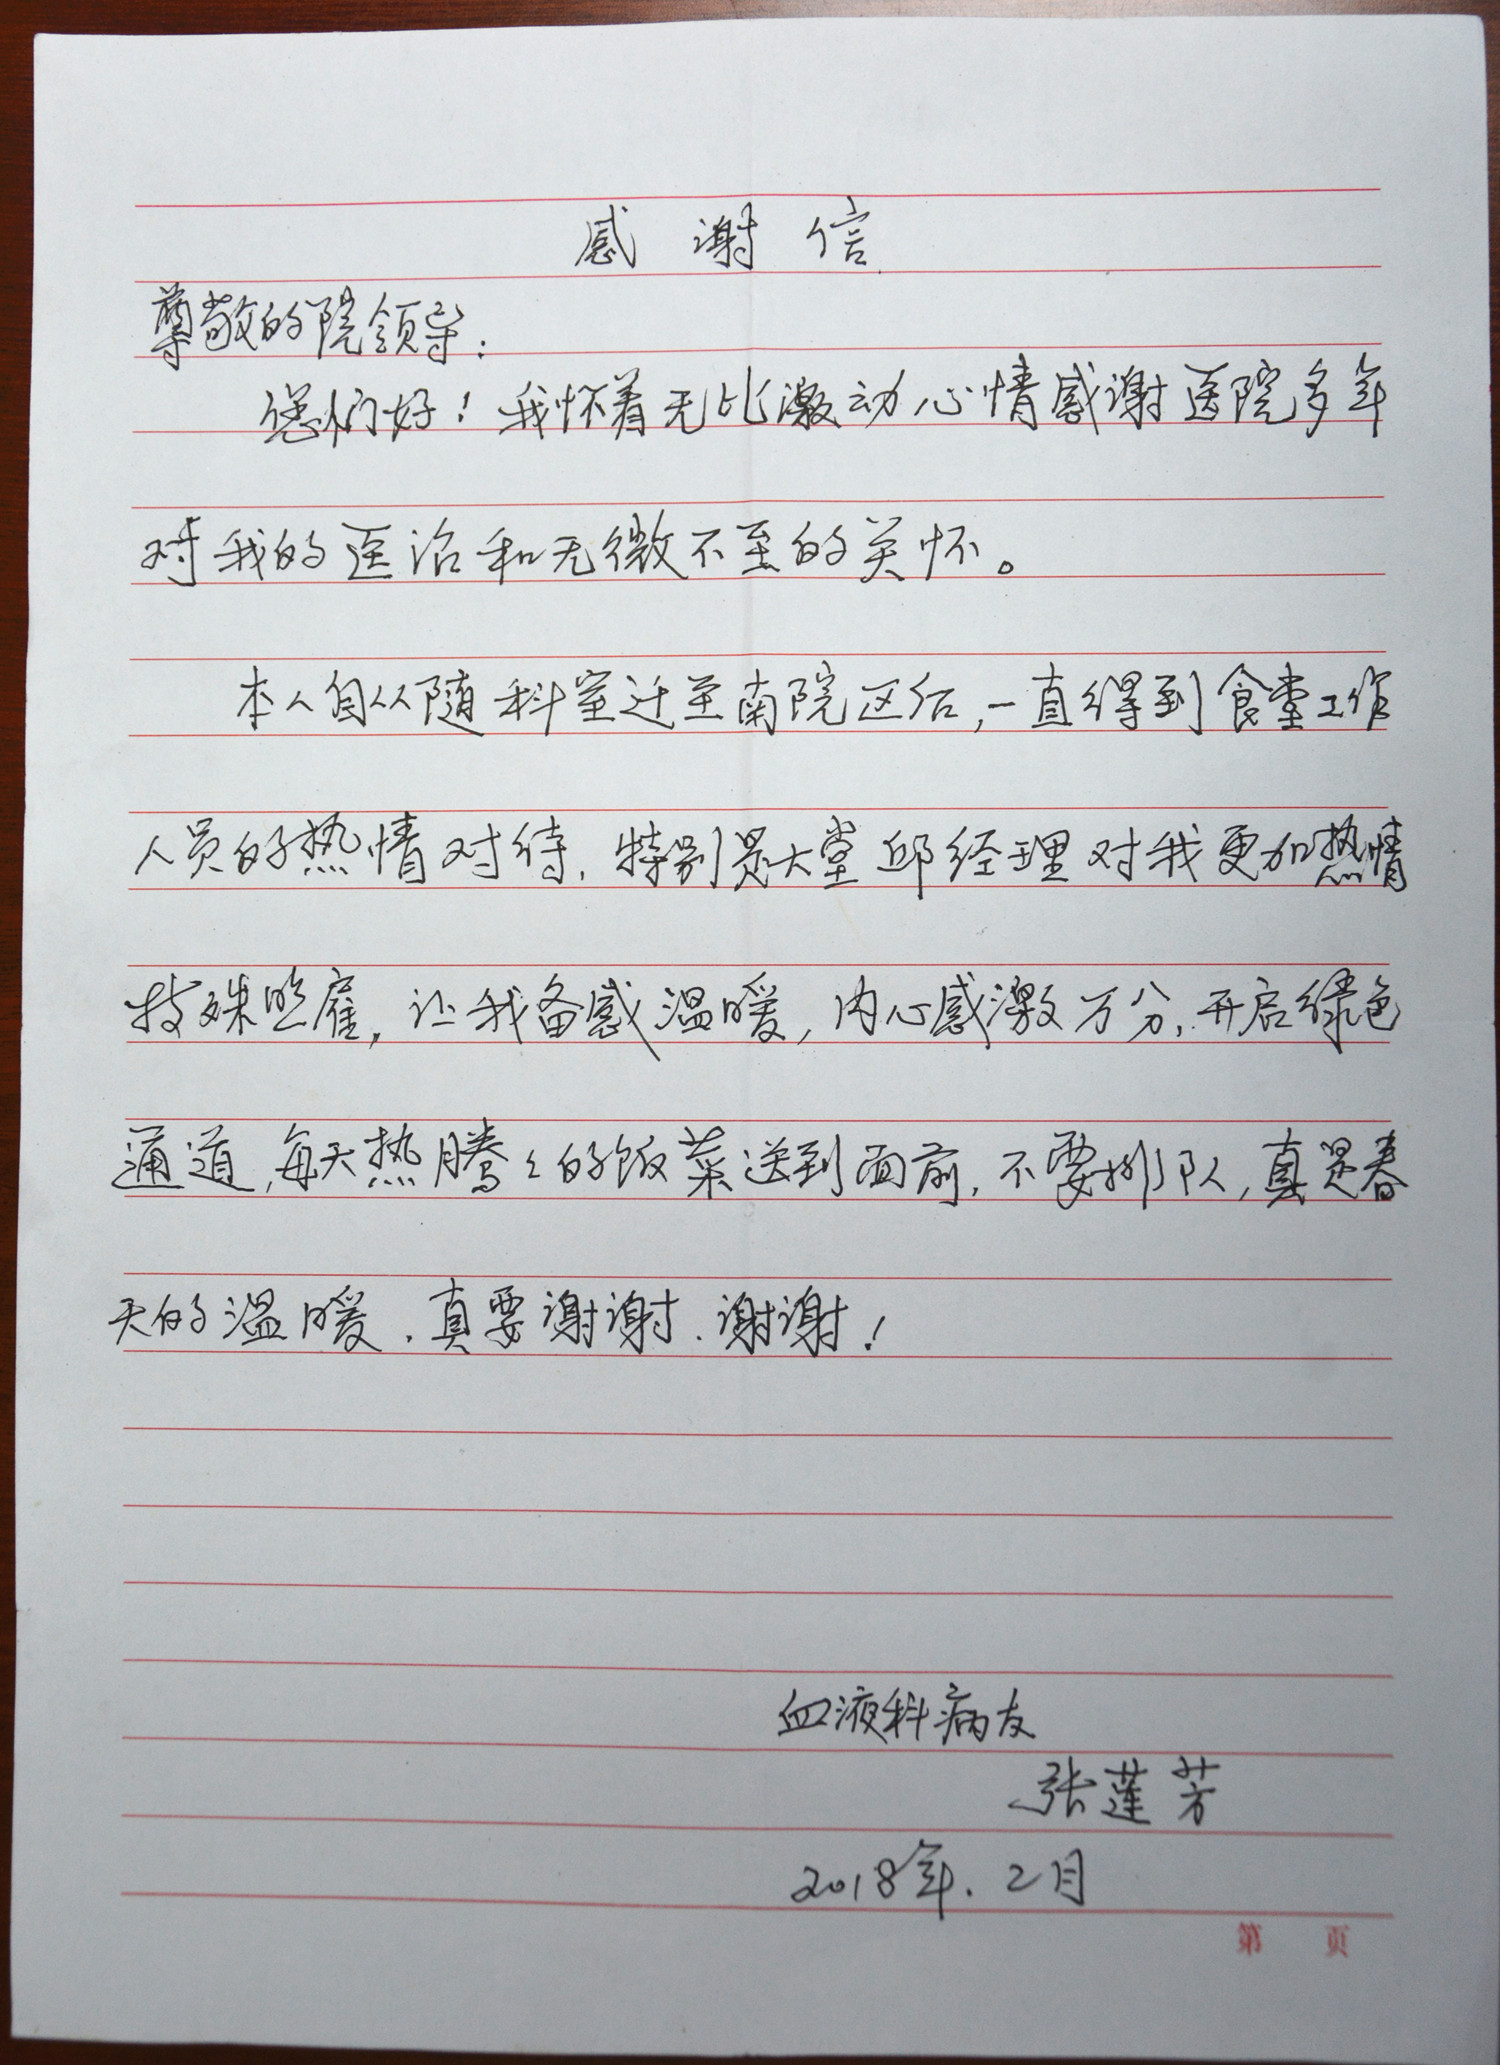 感谢信
尊敬的院领导：
您们好！我怀着无比激动心情感谢医院多年
对我的医治和无微不至的关怀。
本人自从随科室迁至南院区后，一直得到食堂工作
人员的热情对待，特别是大堂邱经理对我更加热情
特殊照雇，让我备感温暖，内心感激万分，开启绿色
通道，每天热腾々的饭菜送到面前，不要排队，真是春
天的温暖，真要谢谢、谢谢！
血液科病友
张莲芳
2018年.2月
第 页